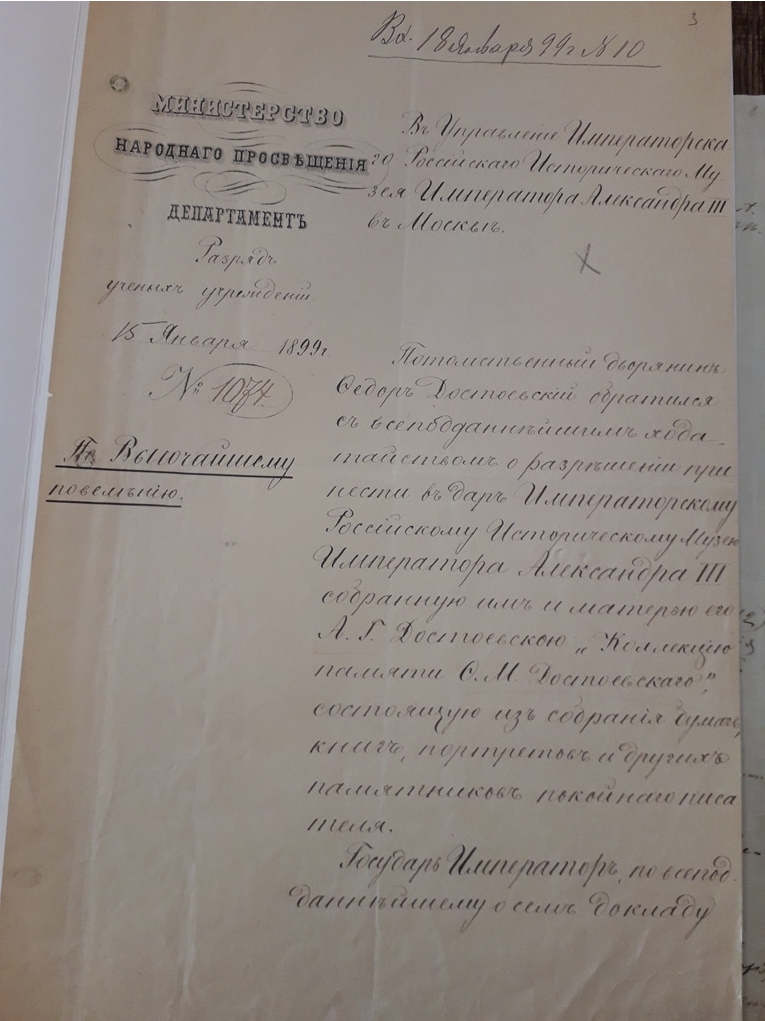 3
Вх. 18 Января 99 г № 10
МИНИСТЕРСТВО
НАРОДНАГО ПРОСВѢЩЕНІЯ
ДЕПАРТАМЕНТЪ
Разрядъ
ученыхъ учрежденій
15 Января 1899 г
№ 1074.
По Высочайшему
повелѣнію.
Въ Управленіе Императорска
го Россійскаго Историческаго Му
зея Императора Александра III
въ Москвѣ.
Потомственный дворянинъ
Ѳедоръ Достоевскій обратился
съ всеподданнѣйшимъ хода-
тайствомъ о разрѣшеніи при
нести въ даръ Императорскому
Россійскому Историческому Музею
Императора Александра III
собранную имъ и матерью его
А. Г. Достоевскою „Коллекцію
памяти Ѳ. М. Достоевскаго",
состоящую изъ собранія бумагъ,
книгъ, портретовъ и другихъ
памятниковъ покойнаго писа
теля.
Государь Императоръ, по всепод-
даннѣйшему о семъ докладу